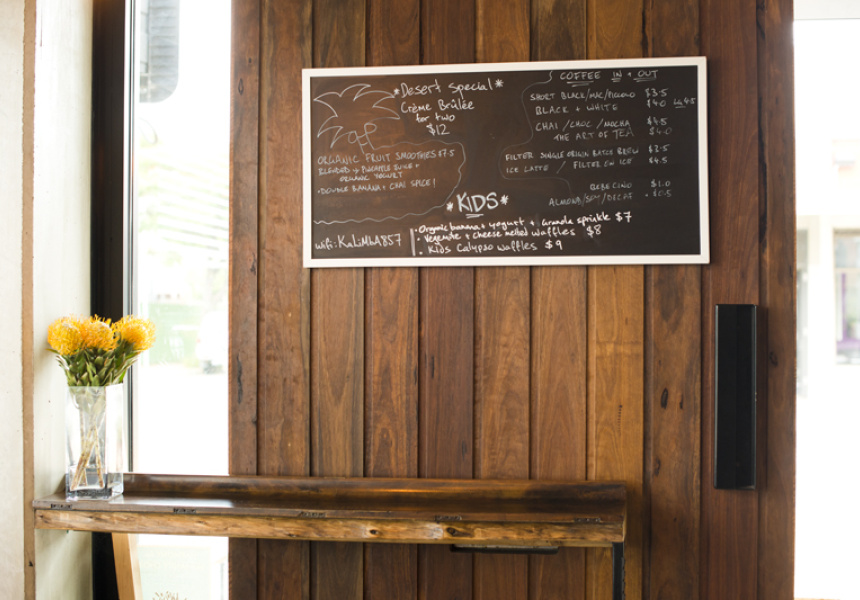 *Desert Special*
Crème Brûlée
for two
$12
ORGANIC FRUIT SMOOTHIES $7.5
BLENDED → PINEAPPLE JUICE +
ORGANIC YOGURT
• DOUBLE BANANA + CHAI SPICE!
wifi: KaLiMbA857
COFFEE IN + OUT
SHORT BLACK/MAC/PICCOLO $3.5
BLACK + WHITE $4.0 LG 4.5
CHAI / CHOC / MOCHA $4.5
THE ART OF TEA $4.0
FILTER SINGLE ORIGIN BATCH BREW $3.5
ICE LATTE / FILTER ON ICE $4.5
BEBECINO $1.0
ALMOND/SOY/DECAF $0.5
*KIDS*
• Organic banana + yogurt + Granola sprinkle $7
• Vegemite + Cheese melted waffles $8
• Kids Calypso waffles $9